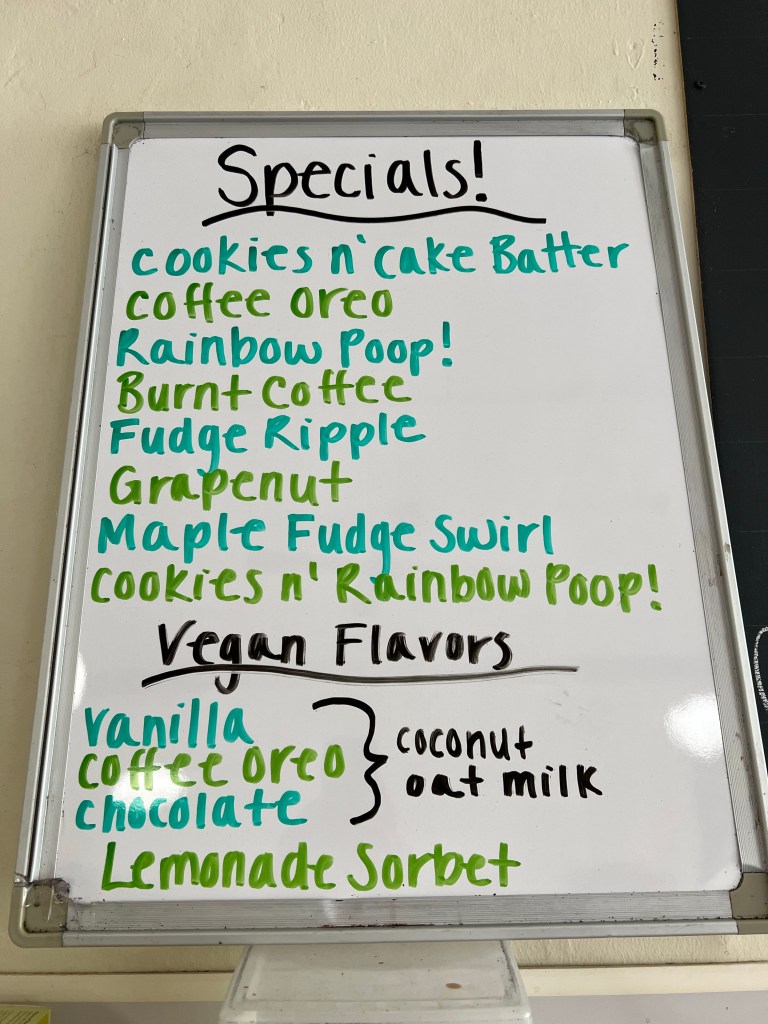 Specials!
cookies n' cake Batter
coffee oreo
Rainbow Poop!
Burnt Coffee
Fudge Ripple
Grapenut
Maple Fudge Swirl
cookies n' Rainbow Poop!
Vegan Flavors
vanilla
coffee oreo
chocolate
coconut
oat milk
Lemonade Sorbet